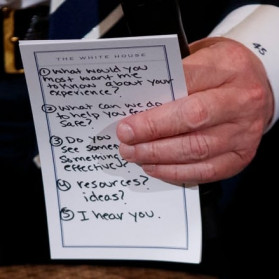 THE WHITE HOUSE
① What would you
most want me
to know about your
experience?
② What can we do
to help you feel
safe?
③ Do you
see some
something
effective?
④ resources?
ideas?
⑤ I hear you.
45